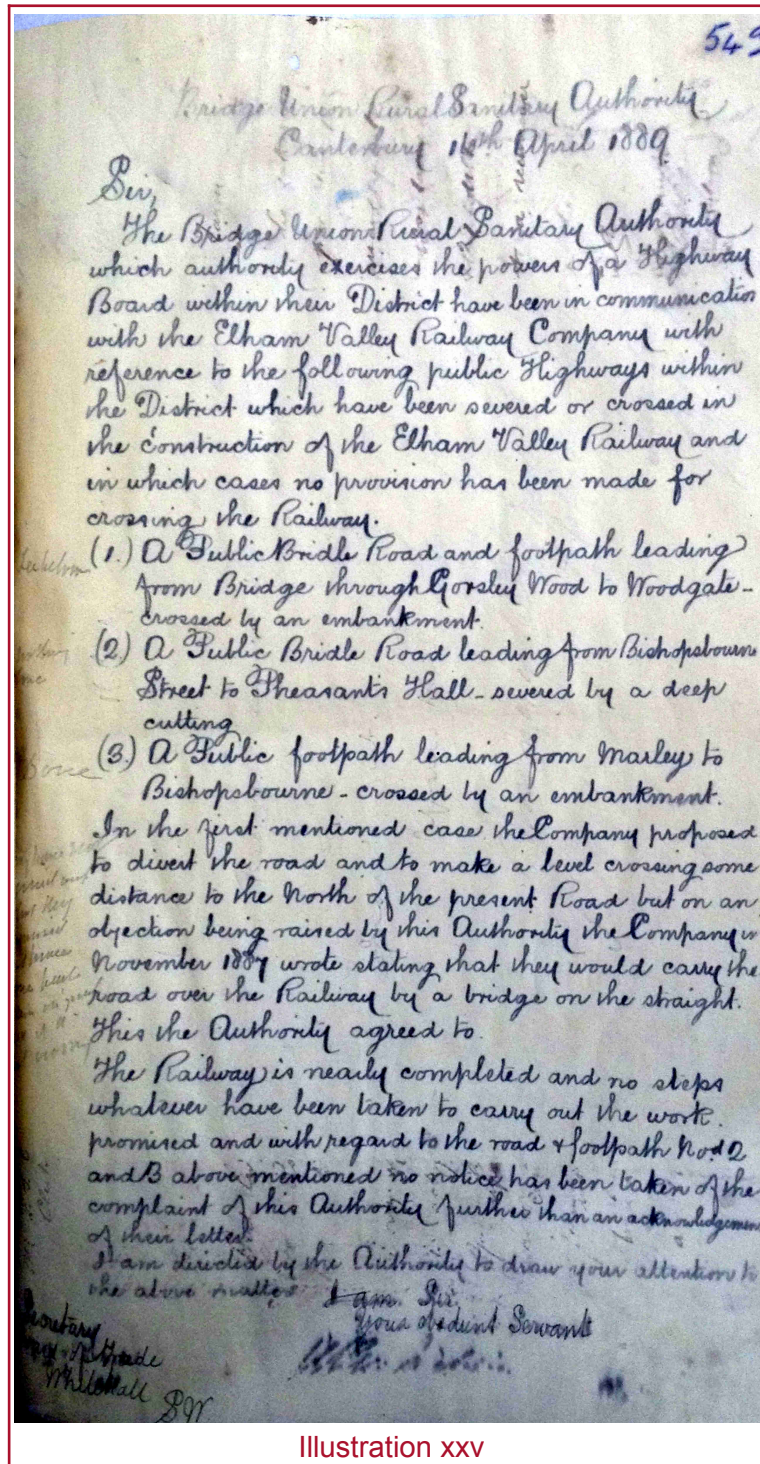 549
Bridge Union Rural Sanitary Authority
Canterbury 14th April 1889
Sir,
The Bridge Union Rural Sanitary Authority
which authority exercises the powers of a Highway
Board within their District have been in communication
with the Elham Valley Railway Company with
reference to the following public Highways within
the District which have been severed or crossed in
the construction of the Elham Valley Railway and
in which cases no provision has been made for
crossing the Railway.
(1.) A Public Bridle Road and footpath leading
from Bridge through Gorsley Wood to Woodgate -
crossed by an embankment.
(2.) A Public Bridle Road leading from Bishopsbourne
Street to Pheasants Hall - severed by a deep
cutting
(3.) A Public footpath leading from Marley to
Bishopsbourne - crossed by an embankment.
In the first mentioned case the Company proposed
to divert the road and to make a level crossing some
distance to the North of the present Road but on an
objection being raised by this Authority the Company in
November 1887 wrote stating that they would carry the
road over the Railway by a bridge on the straight.
This the Authority agreed to.
The Railway is nearly completed and no steps
whatever have been taken to carry out the work
promised and with regard to the road & footpath Nos 2
and 3 above mentioned no notice has been taken of the
complaint of this Authority further than an acknowledgement
of their letter.
I am directed by the Authority to draw your attention to
the above matter
I am Sir,
Your obedient Servant
Secretary
Trade
Whitehall
SW
Illustration xxv